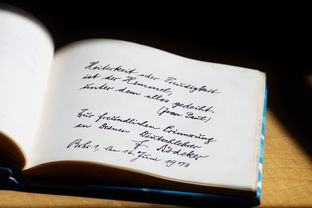 Heiterkeit oder Freudigkeit
ist der Himmel,
unter dem alles gedeiht,
(Jean Paul)
Zur freundlichen Erinnerung
an Deinen
F.
den 16. Juni 1978